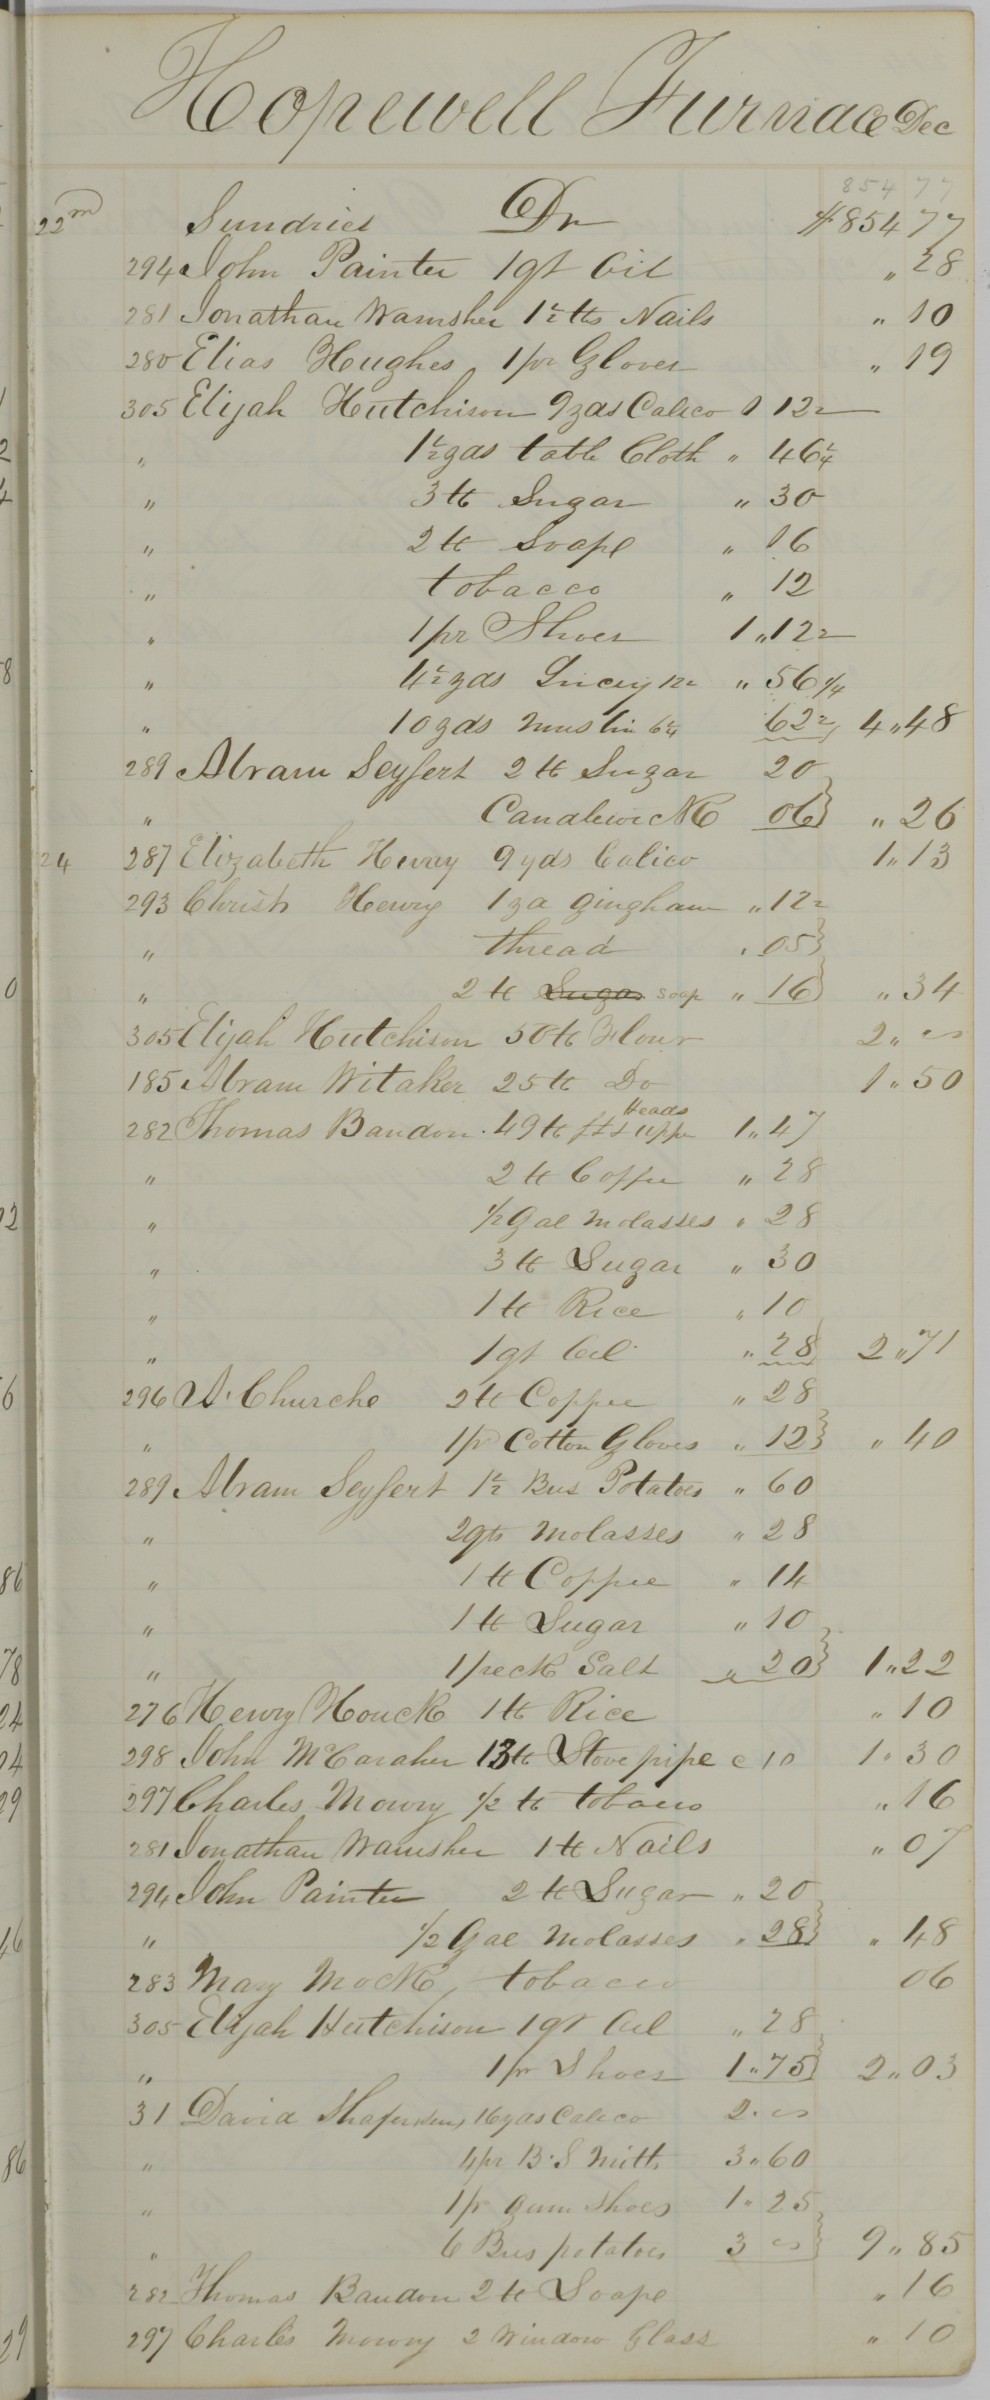 Hopewell Furnace Dec
854 77
22nd Sundries Dr $854 77
294 John Painter 1 qt Oil " 28
281 Jonathan Wamsher 1½ lb Nails " 10
280 Elias Hughes 1 pr Gloves " 19
305 Elijah Hutchison 9 yds Calico 1 12½
" 1½ yds table Cloth " 46¼
" 3 lb Sugar " 30
" 2 lb Soape " 16
" tobacco " 12
" 1 pr Shoes 1 " 12½
" 4½ yds Lincey 12½ " 56 1/4
" 10 yds Muslin 6¼ 62½ 4 " 48
289 Abram Seyfert 2 lb Sugar 20
" Candlewick 06 " 26
24 287 Elizabeth Henry 9 yds Calico 1 " 13
293 Christ Henry 1 yd Gingham " 12½
" thread " 05
" 2 lb Sugar soap " 16 " 34
305 Elijah Hutchison 50 lb Flour 2 "
185 Abram Witaker 25 lb Do 1 " 50
282 Thomas Baudon 49 lb Heads 1 " 47
" 2 lb Coffee " 28
" 1/2 Gal Molasses " 28
" 3 lb Sugar " 30
" 1 lb Rice " 10
" 1 qt Oil " 28 2 " 71
296 Churche 2 lb Coppee " 28
" 1 pr Cotton Gloves " 12 " 40
289 Abram Seyfert 1½ Bus Potatoes " 60
" 2 qts Molasses " 28
" 1 lb Coppee " 14
" 1 lb Sugar " 10
" 1 peck Salt " 20 1 " 22
276 Henry Houck 1 lb Rice " 10
298 John McCaraher 13 lb Stove pipe c 10 1 " 30
297 Charles Mowry 1/2 lb tobacco " 16
281 Jonathan Wamsher 1 lb Nails " 07
294 John Painter 2 lb Sugar " 20
" 1/2 Gal Molasses " 28 " 48
283 Mary Mock tobacco 06
305 Elijah Hutchison 1 qt Oil " 28
" 1 pr Shoes 1 " 75 2 " 03
31 David 16 yds Calico 2 "
" 4 pr B.S Mitts 3 " 60
" 1 pr Gum Shoes 1 " 25
" 6 Bus potatoes 3 9 " 85
282 Thomas Baudon 2 lb Soape " 16
297 Charles Mowry 2 Window Glass " 10